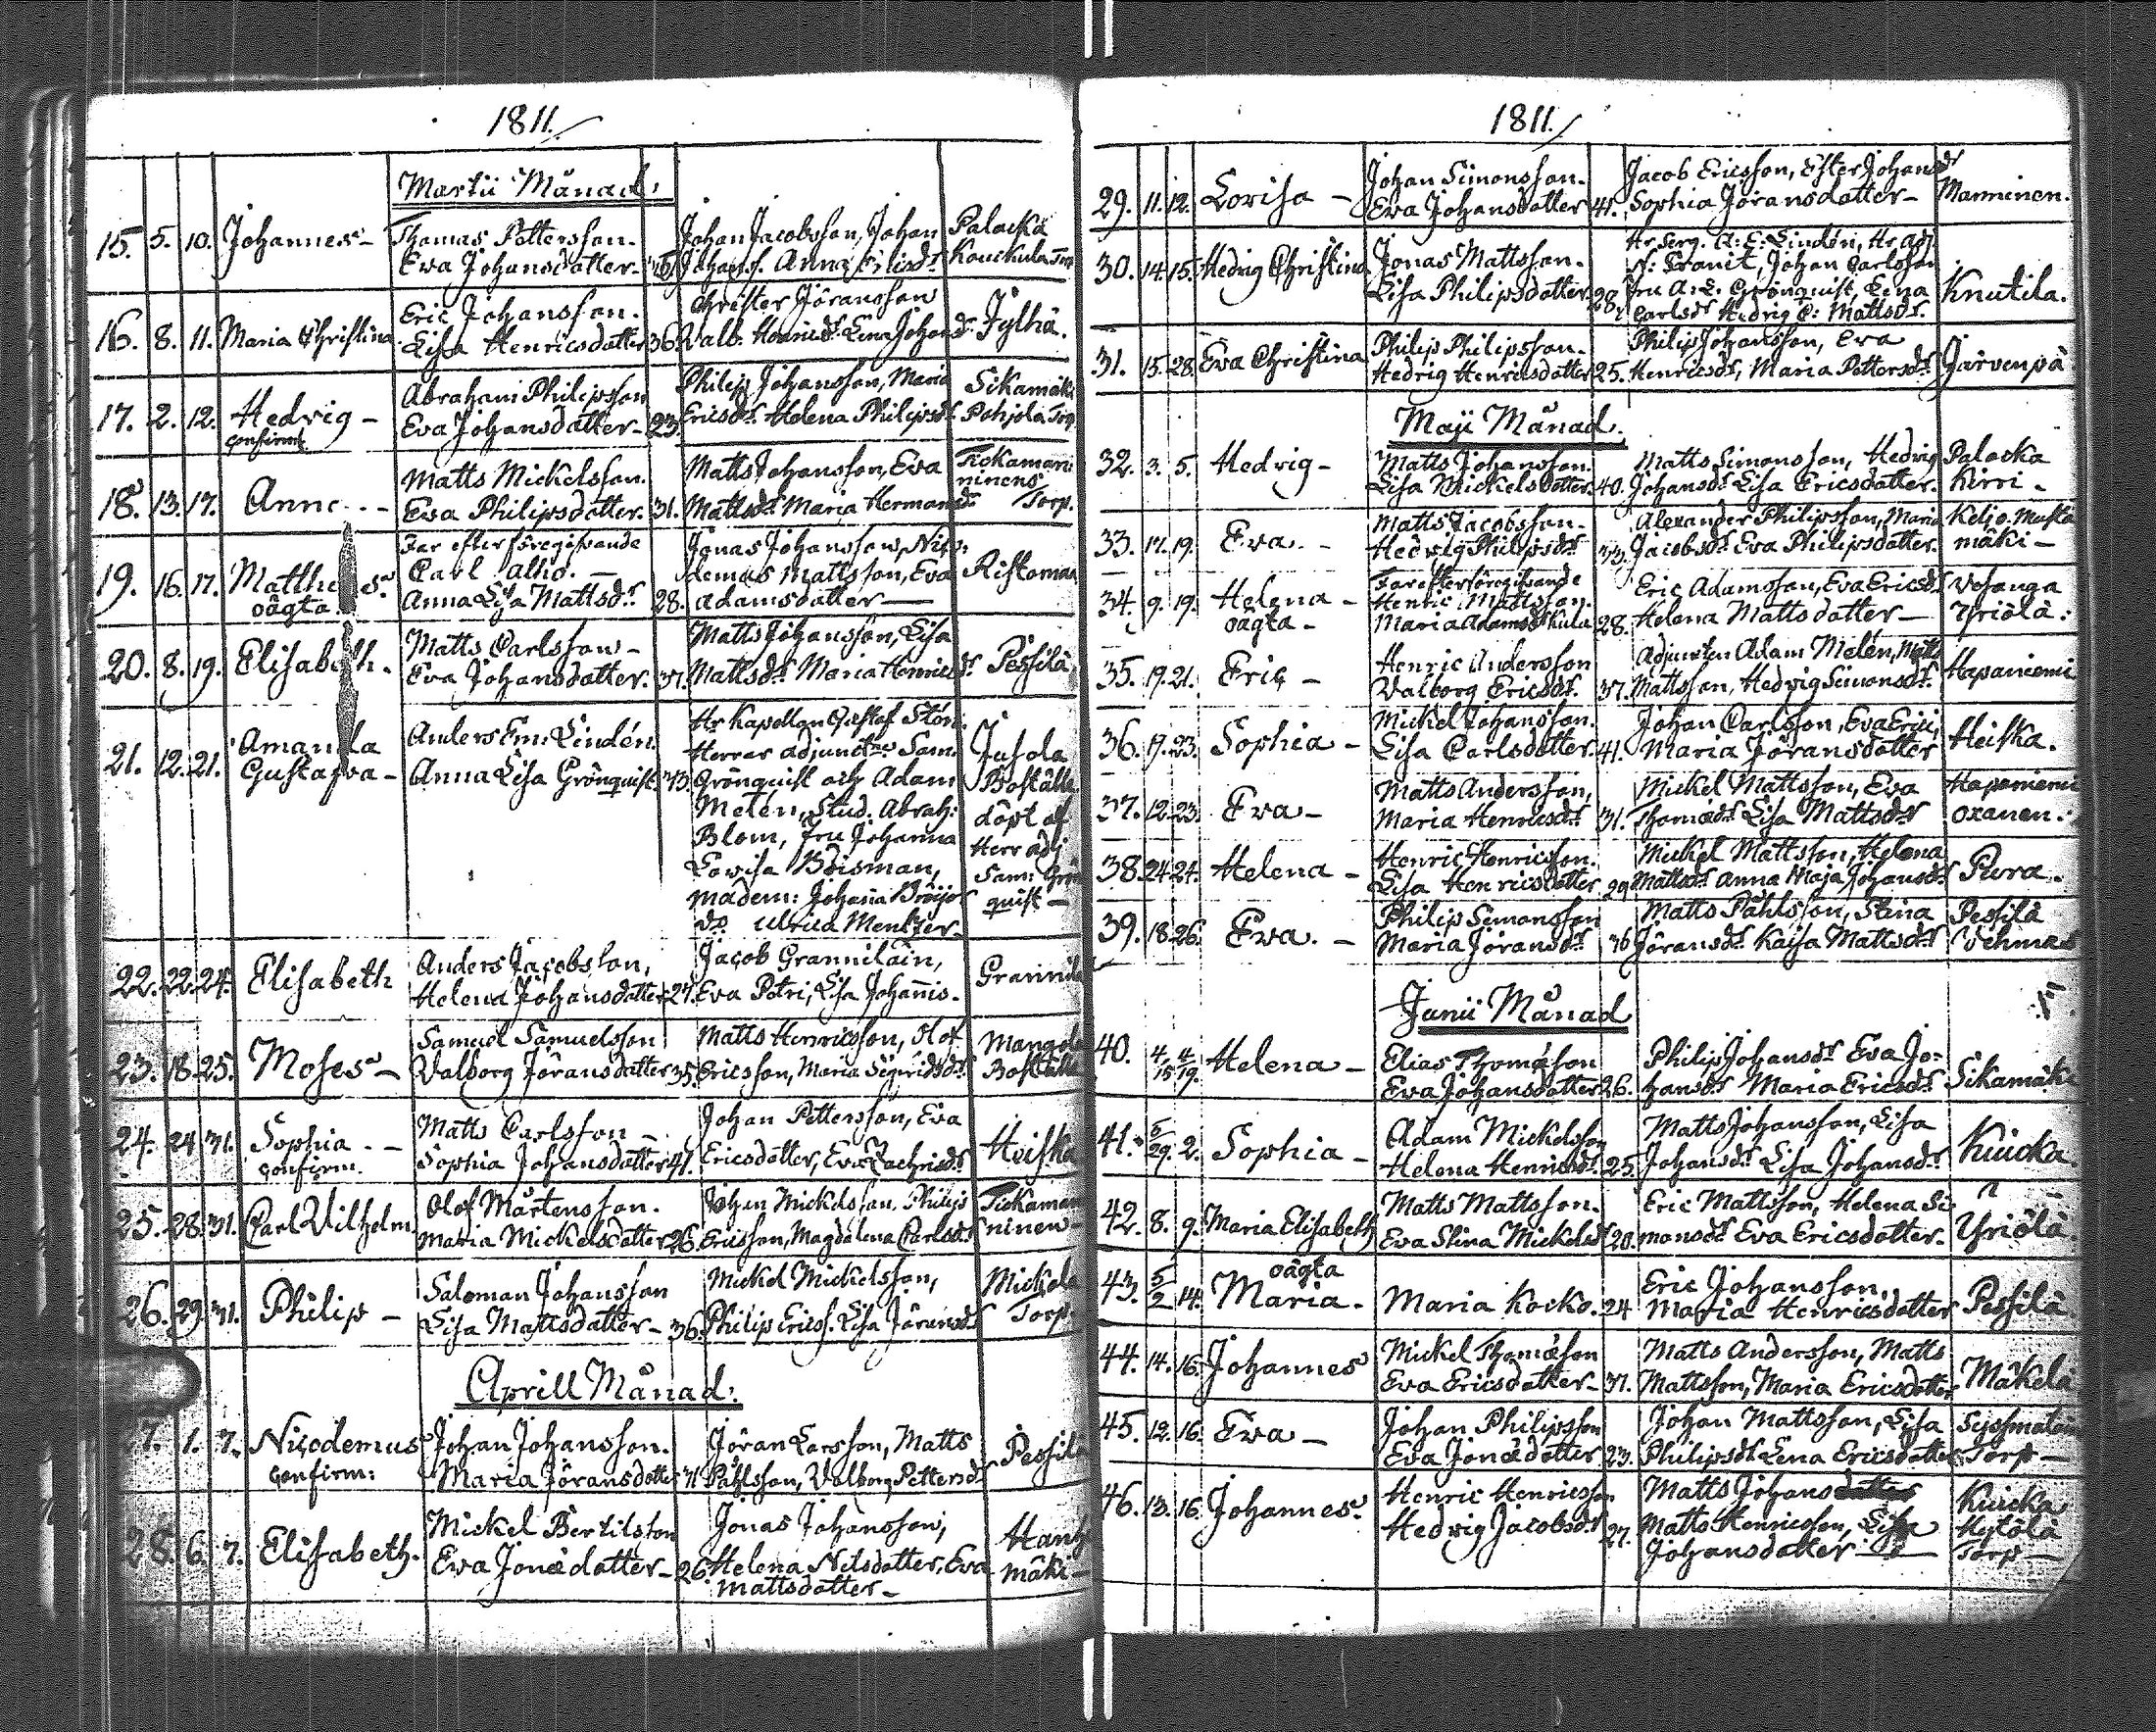 1811.
Martii Månad:
15. 5. 10. Johannes - Thomas Pettersson. Johan Jacobsson, Johan Palacka
Eva Johansdatter - Johanss. Anna
16. 8. 11. Maria Christina Eric Johansson. Christer Jöransson
Lisa Henricsdatter 36. Valb. Henricsdr Lena Johansdr Jylhä.
17. 2. 12. Hedvig - Abraham Philipsson Philip Johansson, Maria Sikamäki
confirm. Eva Johansdatter - 23. Ericsdr Helena Philipsdr Pohjola Torp
18. 13. 17. Matts Mickelsson. Matts Johansson, Eva
Eva Philipsdatter. 31. Mattsdr Maria Hermansdr Torp.
19. 16. 17. Far efter föregifvande Jonas Johansson, Nico-
oägta. Carl Alho. - demus Mattsson, Eva
Anna Lisa Mattsdr 28. Adamsdatter
20. 8. 19. Elisabeth. Matts Carlsson - Matts Johansson, Lisa
Eva Johansdatter. 37. Mattsdr Maria Henricsdr Pessilä
21. 12. 21. Amanda Anders Em: Lindén. Hr Kapellan Gustaf
Gustafva - Anna Lisa Grönquist. Herrar Adjuncter Sam.
Grönquist och Adam
Melén, Stud. Abrah: döpt af
Blom, fru Johanna Herr Adj
Lovisa Boisman, Sam: Grön
Madem: Johana quist -
do Ulrica Mentzer
22. 22. 24. Elisabeth Anders Jacobsson, Jacob Grannilain,
Helena Johansdatter 27. Eva Petri, Lisa Johannis.
23. 18. 25. Moses - Samuel Samuelsson Matts Henricsson, Olof
Valborg Jöransdatter 35. Ericsson, Maria Sigfridsdr
24. 24. 31. Sophia - - Matts Carlsson - Johan Pettersson, Eva
confirm. Sophia Johansdatter 41. Ericsdatter, Eva Zachrisdr Heiska
25. 28. 31. Carl Vilhelm Olof Mårtensson. Johan Mickelsson, Philip
Maria Mickelsdatter 26. Ericsson, Magdalena Carlsdr ninen -
26. 29. 31. Philip - Saloman Johansson Mickel Mickelsson, Mickola
Lisa Mattsdatter - 36. Philip Ericss. Lisa Jöransdr Torp.
Aprill Månad:
7. 1. 7. Nicodemus Johan Johansson. Jöran Larsson, Matts Pessilä
confirm: Maria Jöransdatter Påhlsson, Valborg Pettersdr
28. 6. 7. Elisabeth. Mickel Bertilsson Jonas Johansson,
Eva Jonædatter - 26. Helena Nilsdatter, Eva mäki -
Mattsdatter -
1811.
29. 11. 12. Lovisa - Johan Simonsson. Jacob Ericsson, Ester Johansdr
Eva Johansdatter 41. Sophia Jöransdatter - Manninen.
30. 14. 15. Hedvig Christina Jonas Mattsson. Hr Serg. A: E: Lindén, Hr Adj.
Johan Carlsson
Lisa Philipsdatter 28. Fru A: L: Grönquist, Lena Knutila.
Carlsdr Hedvig C: Mattsdr.
31. 15. 28. Eva Christina Philip Philipsson. Philip Johansson, Eva
Hedvig Henricsdatter 25. Henricsdr, Maria Pettersdr Järvenpä
Maji Månad.
32. 3. 5. Hedvig - Matts Johansson. Matts Simonsson, Hedvig Palacka
Lisa Mickelsdatter. 40. Johansdr Lisa Ericsdatter. Kirri -
33. 17. 19. Eva. - Matts Jacobsson. Alexander Philipsson, Maria Keljo. Musta
Hedvig Philipsdr 33. Jacobsdr Eva Philipsdatter. mäki -
34. 9. 19. Helena - Far efter föregifvande Eric Adamsson, Eva Ericsdr Vesanga
oägta - Henric Mattsson. Helena Mattsdatter - Yriölä.
Maria Adamsdr 28.
35. 19. 21. Eric - Henric Andersson Adjuncten Adam Melén, Matts
Valborg Ericsdr. 37. Mattsson, Hedvig Simonsdr. Hapaniemi
36. 19. 23. Sophia - Mickel Johansson. Johan Carlsson, Eva Erici,
Lisa Carlsdatter. 41. Maria Jöransdatter Heiska.
37. 12. 23. Eva - Matts Andersson, Mickel Mattsson, Eva Hapaniemi
Maria Henricsdr 31. Thomædr Lisa Mattsdr Oxanen.
38. 24. 24. Helena - Henric Henricsson. Mickel Mattsson, Helena
Lisa Henricsdatter 29. Mattsdr Anna Maja Johansdr Pura.
39. 18. 26. Eva. - Philip Simonsson Matts Påhlsson, Stina Pessilä
Maria Jöransdr 36 Jöransdr Kaisa Mattsdr Vehmas
Junii Månad
40. 4/15 4/19. Helena - Elias Thomæson Philip Johansdr Eva Jo-
Eva Johansdatter 26. hansdr Maria Ericsdr Sikamäki
41. 5/29. 2. Sophia - Adam Mickelsson Matts Johansson, Lisa
Helena Henricsdr 25. Johansdr Lisa Johansdr Kuicka.
42. 8. 9. Maria Elisabeth Matts Mattsson. Eric Mattsson, Helena Si-
Eva Stina Mickelsdr 20. monsdr Eva Ericsdatter. Yriölä.
oägta
43. 5/2 14. Maria. Maria Kocko. 24 Eric Johansson,
Maria Henricsdatter Pessilä.
44. 14. 16. Johannes Mickel Thomæson Matts Andersson, Matts
Eva Ericsdatter - 37. Mattsson, Maria Ericsdatter Mäkelä
45. 12. 16. Eva - Johan Philipsson Johan Mattsson, Lisa
Eva Jonædatter 23. Philipsdr Lena Ericsdatter Torp -
46. 13. 16. Johannes. Henric Henricsson Matts Johans Kuicka
Hedvig Jacobsdr 27. Matts Henricsson, Lisa Hytölä
Johansdatter Torp -